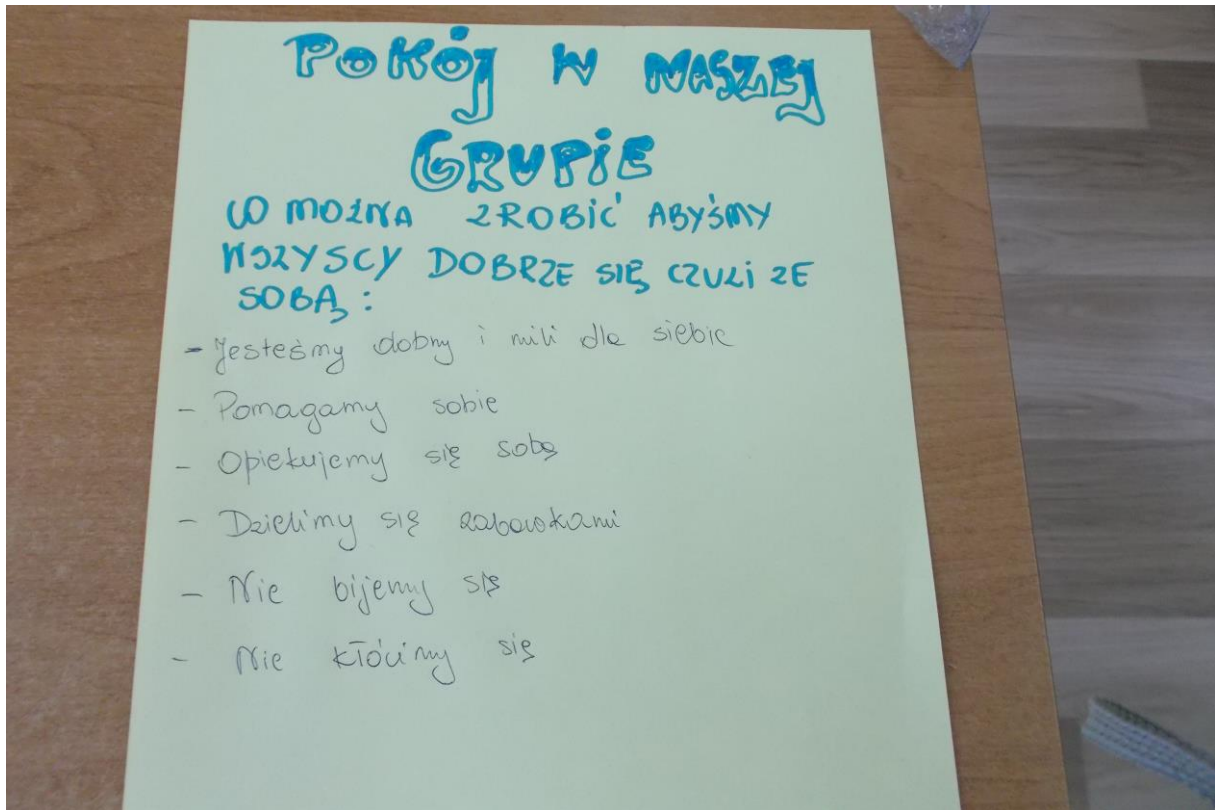 POKÓJ W NASZEJ
GRUPIE
CO MOŻNA ZROBIĆ ABYŚMY
WSZYSCY DOBRZE SIĘ CZULI ZE
SOBĄ:
- Jesteśmy dobrzy i mili dla siebie
- Pomagamy sobie
- Opiekujemy się sobą
- Dzielimy się zabawkami
- Nie bijemy się
- Nie kłócimy się